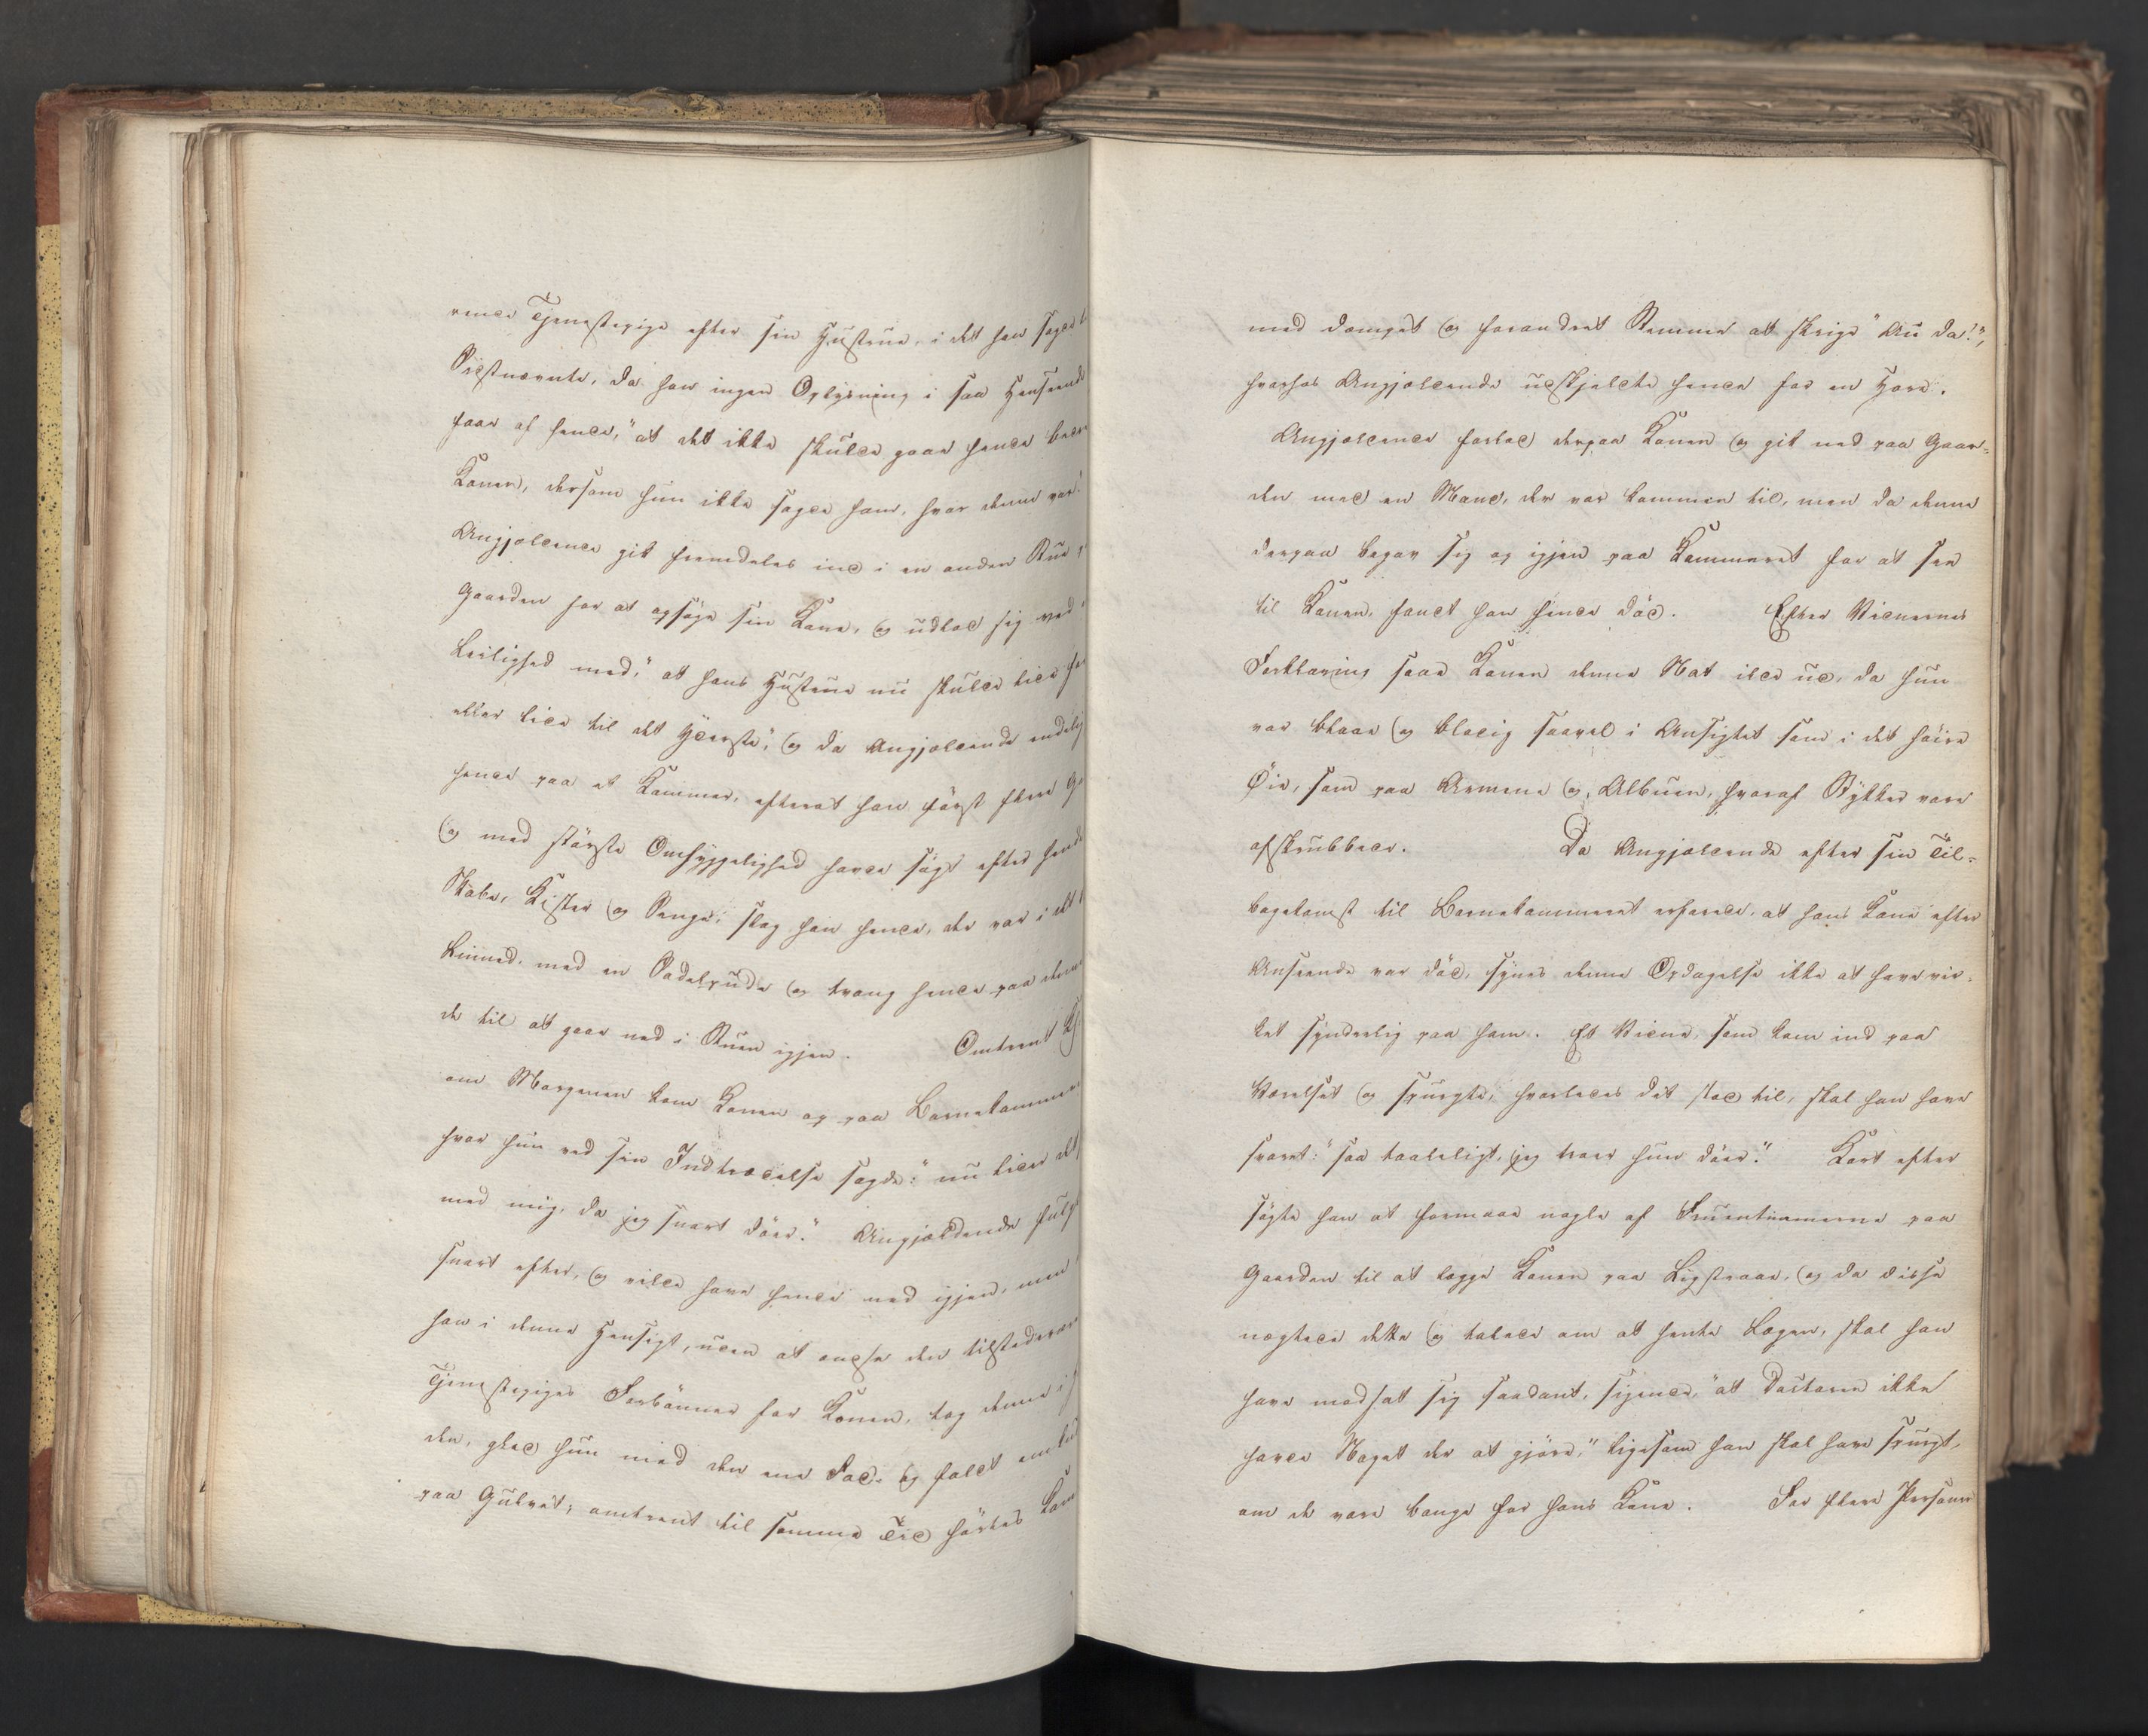 rende Tjenestepige efter sin Hustrue, i det han sagde t
Sidstnævnte, da han ingen Oplysning i saa Henseende
faar af hende, "at det ikke skulde gaae hende bedre
Konen, dersom hun ikke sagde ham, hvor denne var."
Angjældende gik fremdeles ind i en anden Stue p
Gaarden for at opsøge sin Kone, og udlod sig ved
Leilighed med, "at hans Hustrue nu skulde lide for
eller lide til det Yderste", og da Angjældende endelig
hende paa et Kammer, efterat han først flere G
og med største Omhyggelighed havde søgt efter hende
Skabe, Kister og Senge, slog han hende, der var i det
Linned, med en Sadelpude og tvang hende paa denne
de til at gaae ned i Stuen igjen. Omtrent Kl.
om Morgenen kom Konen op paa Børnekammeret
hvor hun ved sin Indtrædelse sagde: "nu lider det
med mig, da jeg snart døer." Angjældende fulgte
snart efter, og vilde have hende ned igjen, men
han i denne Hensigt, uden at endse den tilstedeværende
Tjenestepiges Forbønner for Konen, tog denne i
den, gled hun med den ene Fod og faldt omkuld
paa Gulvet; omtrent til samme Tid hørtes Konen
med dæmpet og forandret Stemme at skrige "Au da!",
hvorhos Angjældende udskjældte hende for en Hore.
Angjældende forlod derpaa Konen og gik ned paa Gaar-
den med en Mand, der var kommen til, men da denne
derpaa begav sig op igjen paa Kammeret for at see
til Konen, fandt han hende død. Efter Vidnernes
Forklaring saae Konen denne Nat ilde ud, da hun
var blaae og blodig saavel i Ansigtet som i det høire
Øie, samt paa Armene og Albuen, hvoraf Stykker vare
afskrubbede. Da Angjældende efter sin Til-
bagekomst til Børnekammeret erfarede, at hans Kone efter
Anseende var død, synes denne Opdagelse ikke at have vir-
ket synderlig paa ham. Et Vidne, som kom ind paa
Værelset og spurgte, hvorledes det stod til, skal han have
svaret: "saa taaleligt, jeg troer hun døer." Kort efter
søgte han at formaae nogle af Fruentimmerne paa
Gaarden til at lægge Konen paa Ligstraae, og da disse
nægtede dette og talede om at hente Lægen, skal han
have modsat sig saadant, sigende, "at Doctoren ikke
havde Noget der at gjøre," ligesom han skal have spurgt,
om de vare bange for hans Kone. For flere Personer